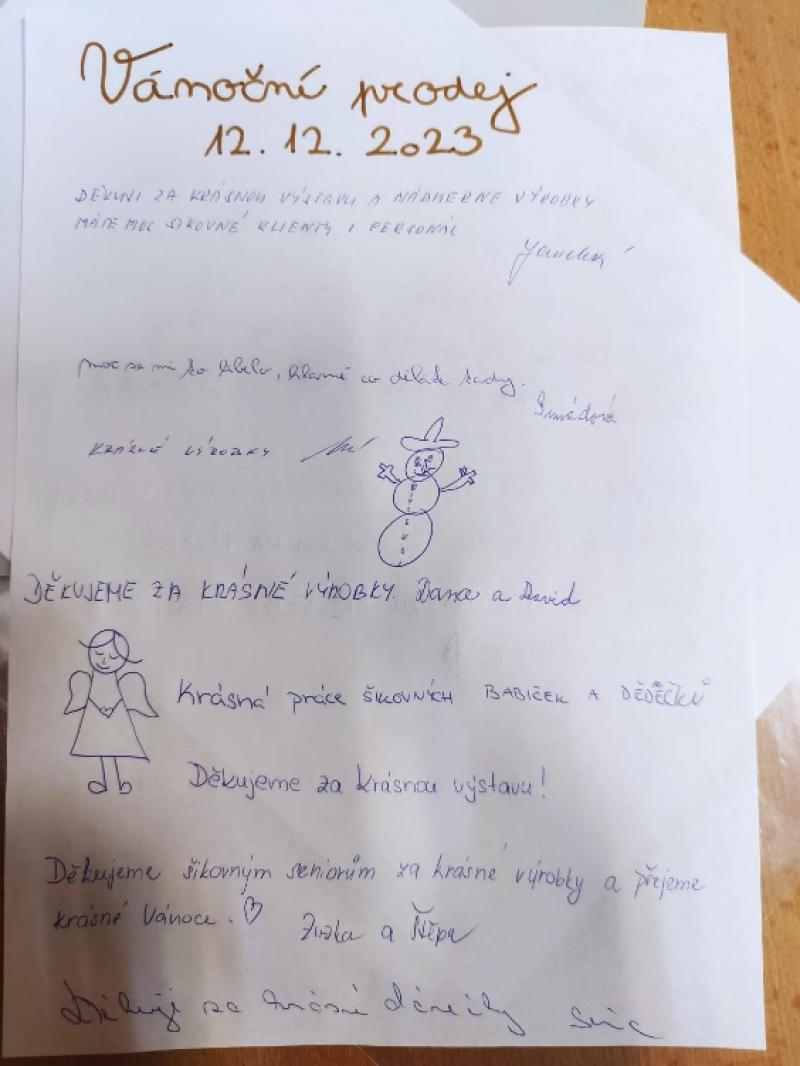 Vánoční prodej
12. 12. 2023
DĚKUJI ZA KRÁSNOU VÝSTAVU A NÁDHERNÉ VÝROBKY.
MÁTE MOC ŠIKOVNÉ KLIENTY I PERSONÁL
moc se mi to líbilo, hlavně co děláte tady.
KRÁSNÉ VÝROBKY
DĚKUJEME ZA KRÁSNÉ VÝROBKY. Dana a David
Krásná práce šikovných BABIČEK A DĚDEČKŮ
Děkujeme za krásnou výstavu!
Děkujeme šikovným seniorům za krásné výrobky a přejeme
krásné Vánoce.
a
Děkuji za krásné dárečky